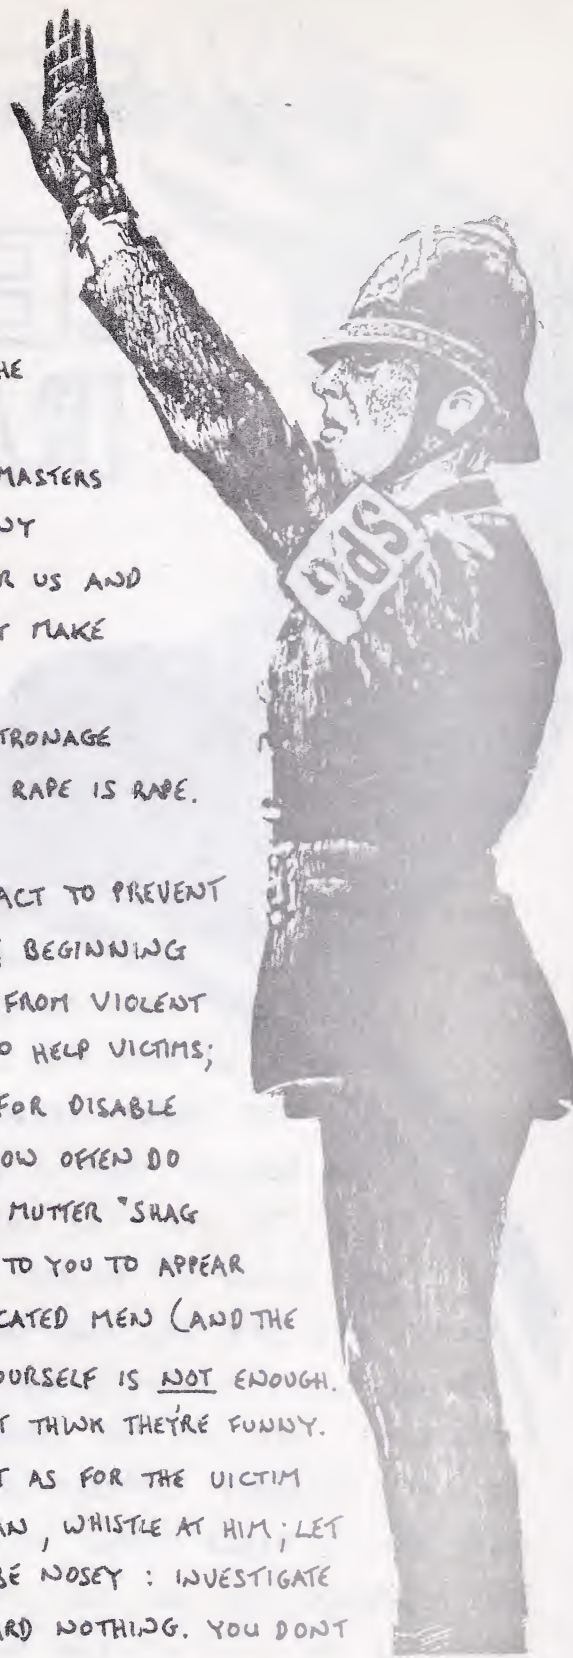 HE
MASTERS
NY
R US AND
T MAKE
SPG
TRONAGE
RAPE IS RAPE.
ACT TO PREVENT
E BEGINNING
FROM VIOLENT
O HELP VICTIMS;
FOR DISABLE
OW OFTEN DO
MUTTER "SHAG
TO YOU TO APPEAR
CATED MEN (AND THE
OURSELF IS NOT ENOUGH.
T THINK THEY'RE FUNNY.
T AS FOR THE VICTIM
AN, WHISTLE AT HIM; LET
BE NOSEY : INVESTIGATE
ARD NOTHING. YOU DONT